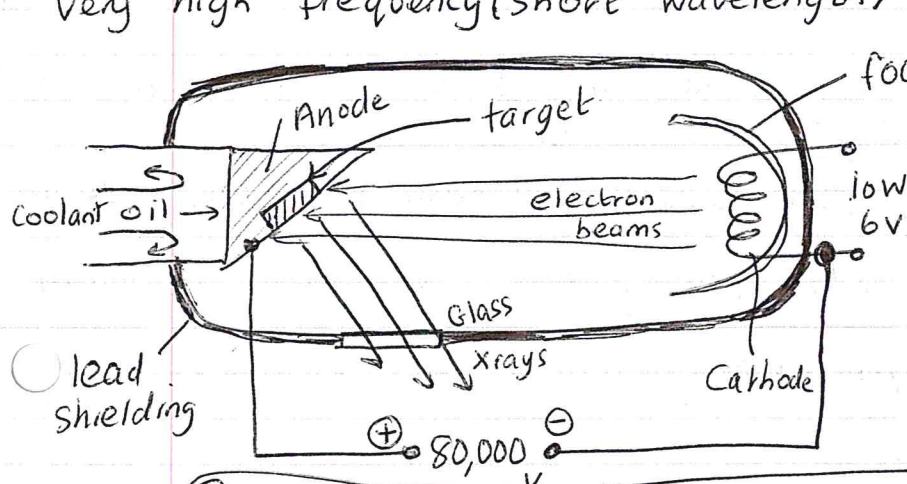 very high frequency (short wavelength)
Anode
target
foc
Coolant oil
electron
beams
low
6V
Glass
xrays
lead
shielding
Cathode
+
−
80,000
V